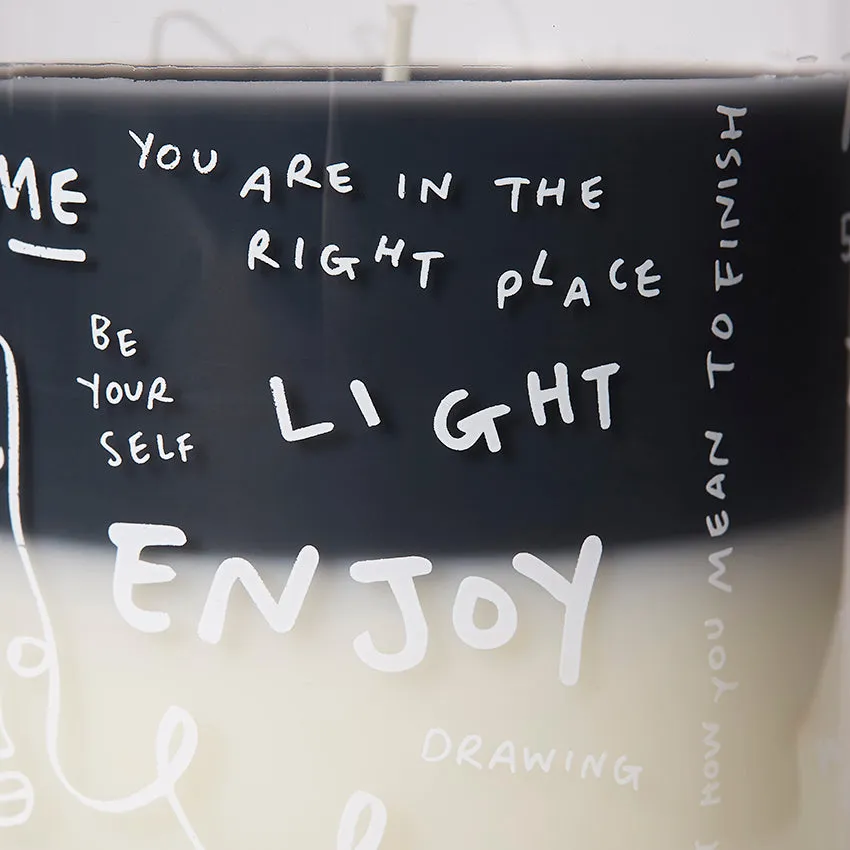 ME
YOU ARE IN THE
RIGHT PLACE
BE
YOUR
SELF
LIGHT
ENJOY
DRAWING
HOW YOU MEAN TO FINISH